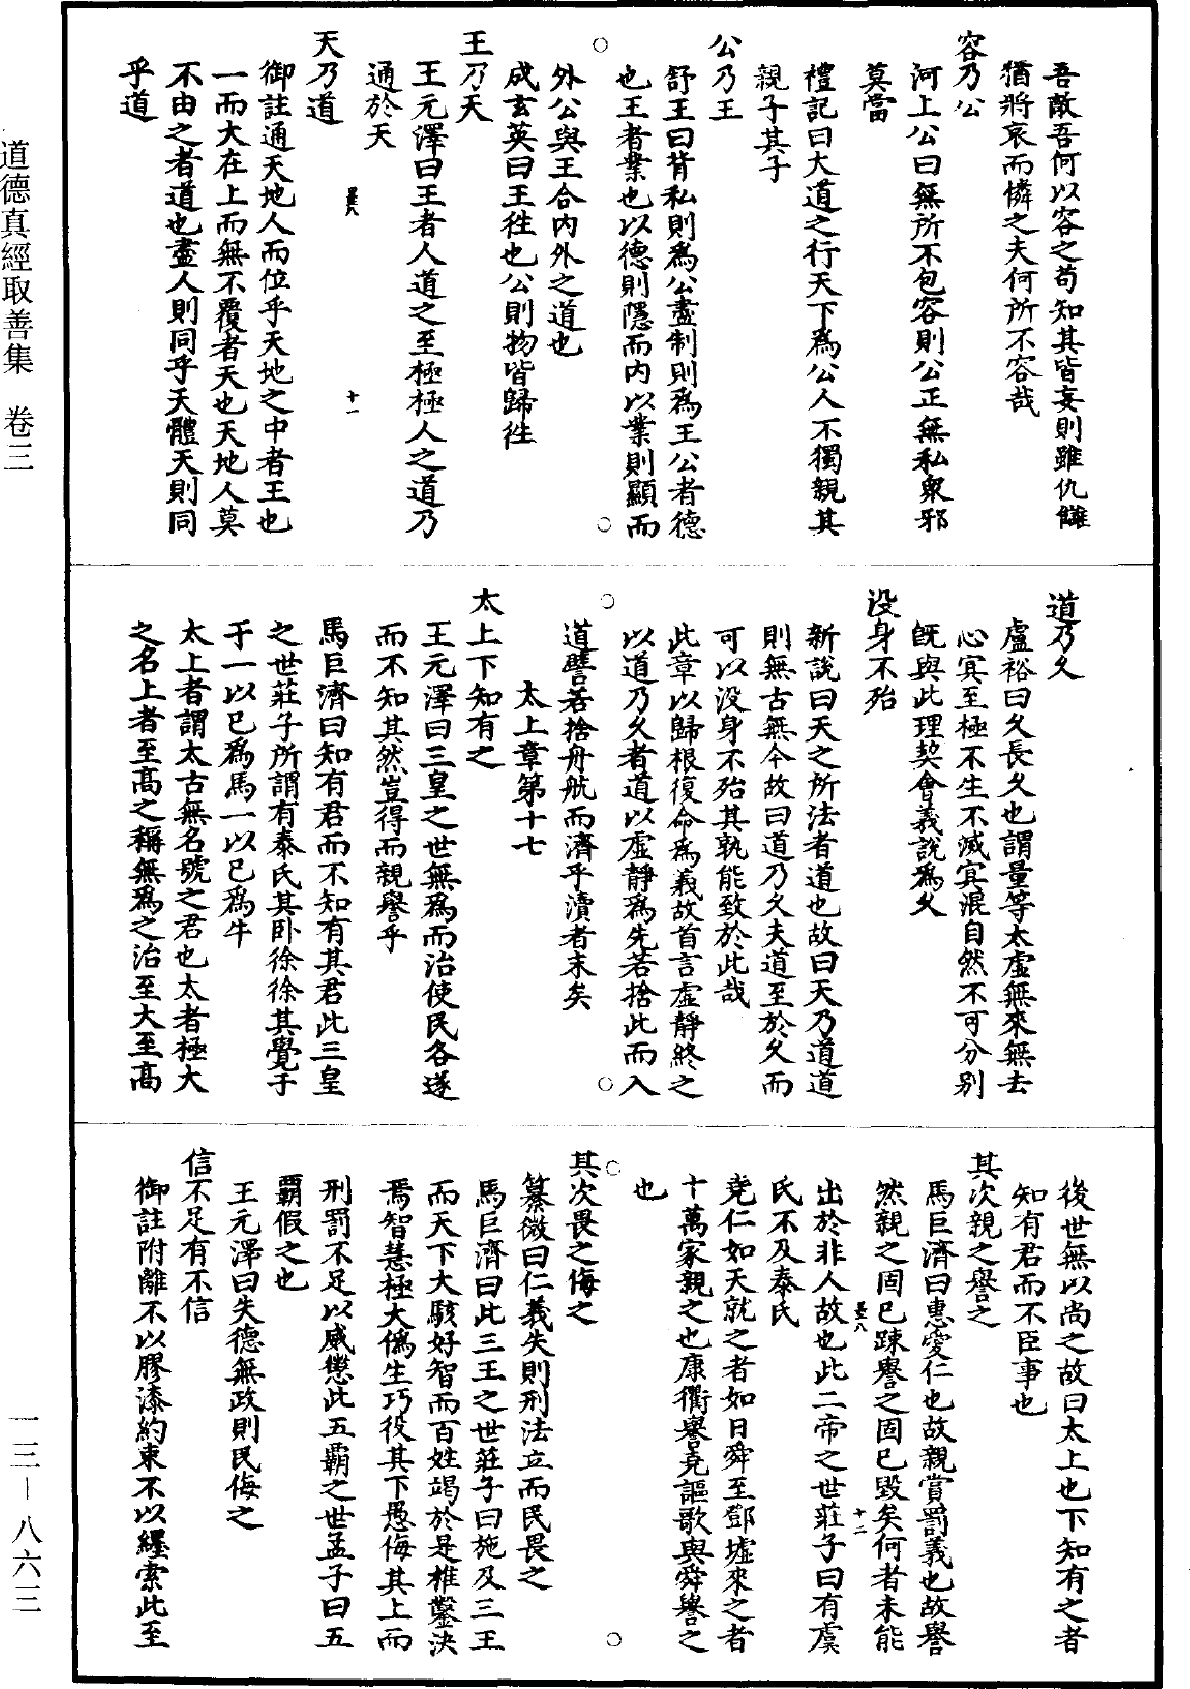 吾敵吾何以容之苟知其皆妄則雖仇讎
猶將哀而憐之夫何所不容哉
容乃公
河上公曰無所不包容則公正無私衆邪
莫當
禮記曰大道之行天下爲公人不獨親其
親子其子
公乃王
舒王曰背私則爲公盡制則爲王公者德
也王者業也以德則隱而内以業則顯而
外公與王合内外之道也
成玄英曰王徃也公則物皆歸徃
王乃天
王元澤曰王者人道之至極極人之道乃
通於天
天乃道
御註通天地人而位乎天地之中者王也
一而大在上而無不覆者天也天地人莫
不由之者道也盡人則同乎天體天則同
乎道
道乃久
盧裕曰久長久也謂量等太虛無來無去
心冥至極不生不滅冥混自然不可分別
旣與此理契會義說爲久
没身不殆
新說曰天之所法者道也故曰天乃道道
則無古無今故曰道乃久夫道至於久而
可以没身不殆其孰能致於此哉
此章以歸根復命爲義故首言虛靜終之
以道乃久者道以虛靜爲先若捨此而入
道譬若捨舟航而濟乎瀆者末矣
太上章第十七
太上下知有之
王元澤曰三皇之世無爲而治使民各遂
而不知其然豈得而親譽乎
馬巨濟曰知有君而不知有其君此三皇
之世莊子所謂有泰氏其卧徐徐其覺于
于一以已爲馬一以已爲牛
太上者謂太古無名號之君也太者極大
之名上者至高之稱無爲之治至大至高
後世無以尚之故曰太上也下知有之者
知有君而不臣事也
其次親之譽之
馬巨濟曰惠愛仁也故親賞罰義也故譽
然親之固已踈譽之固已毀矣何者未能
出於非人故也此二帝之世莊子曰有虞
氏不及泰氏
堯仁如天就之者如日舜至鄧墟來之者
十萬家親之也康衢譽堯謳歌與舜譽之
也
其次畏之侮之
纂微曰仁義失則刑法立而民畏之
馬巨濟曰此三王之世莊子曰施及三王
而天下大駭好智而百姓竭於是椎鑿決
焉智慧極大僞生巧役其下愚侮其上而
刑罰不足以威懲此五霸之世孟子曰五
霸假之也
王元澤曰失德無政則民侮之
信不足有不信
御註附離不以膠漆約束不以纆索此至
道德真經取善集　卷三
一三－八六三
十一
十二